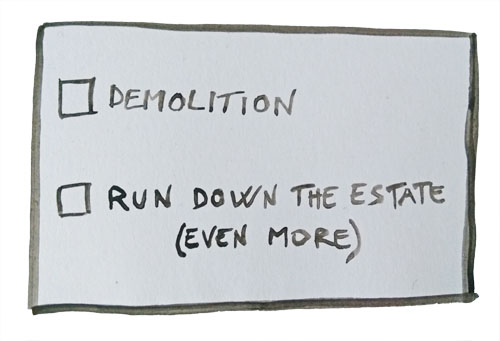 DEMOLITION
RUN DOWN THE ESTATE
(EVEN MORE)